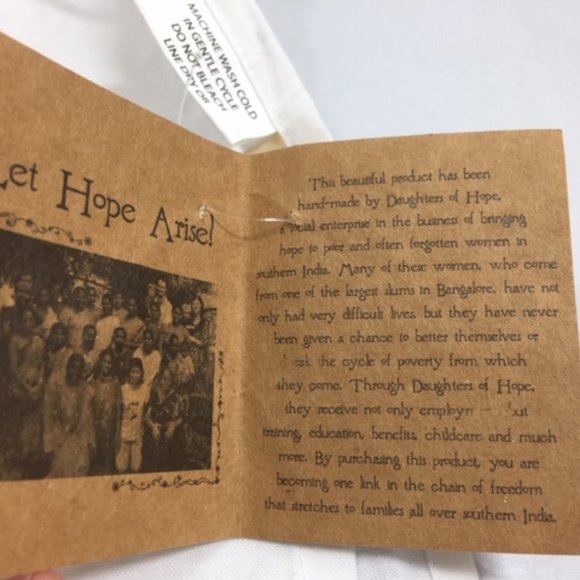 MACHINE WASH COLD
IN GENTLE CYCLE
DO NOT BLEACH
LINE DRY OR
Let Hope Arise!
This beautiful product has been
hand-made by Daughters of Hope,
a social enterprise in the business of bringing
hope to poor and often forgotten women in
southern India. Many of these women, who come
from one of the largest slums in Bangalore, have not
only had very difficult lives, but they have never
been given a chance to better themselves or
the cycle of poverty from which
they come. Through Daughters of Hope,
they receive not only but
training, education, benefits, childcare and much
more. By purchasing this product, you are
becoming one link in the chain of freedom
that stretches to families all over southern India.